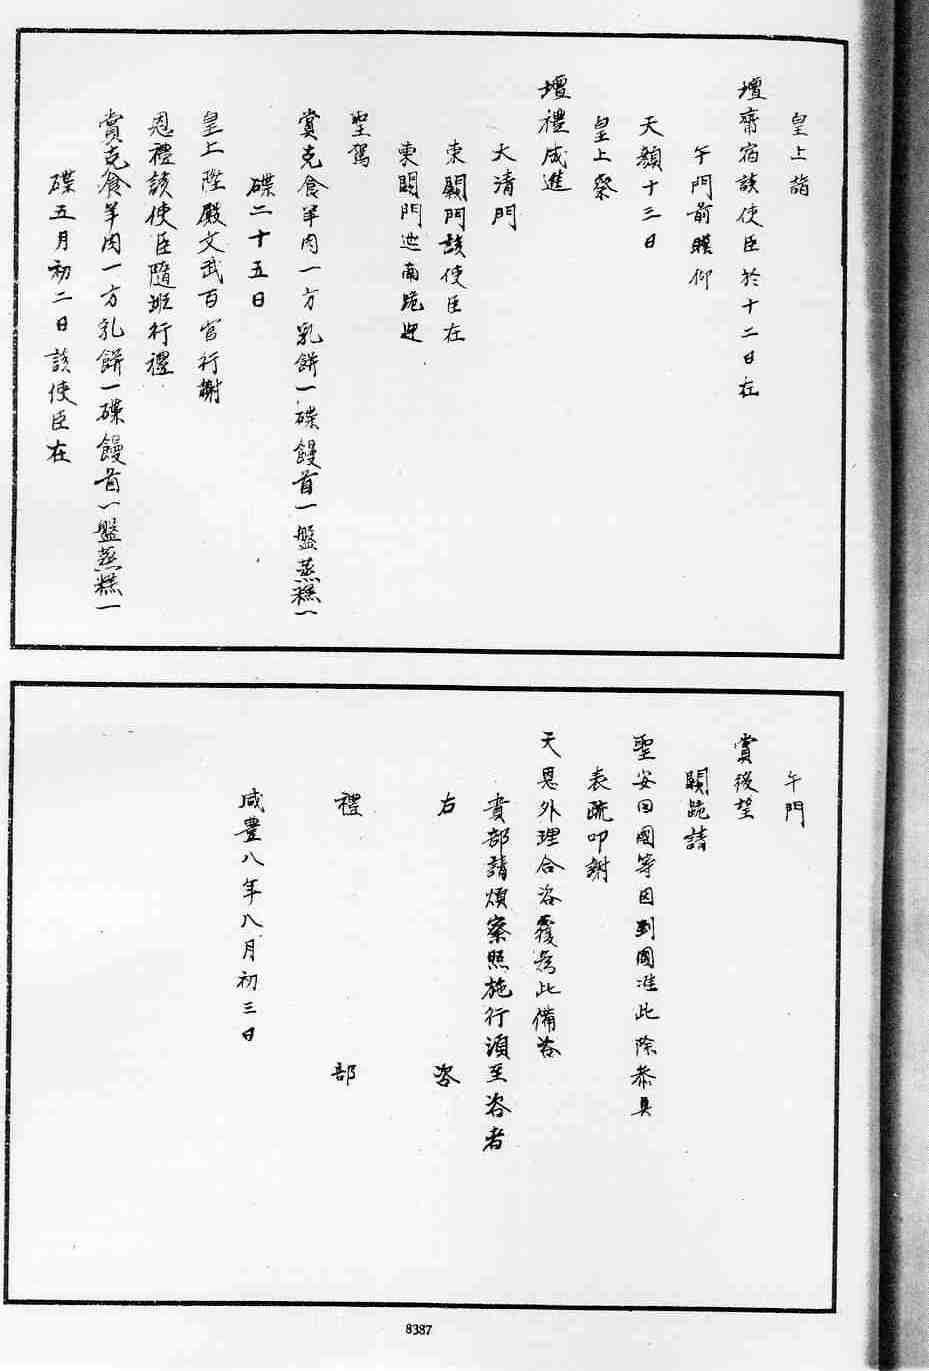 皇上詣
壇齋宿該使臣於十二日在
午門前瞻仰
天顏十三日
皇上祭
壇禮成進
大清門
東闕門該使臣在
東闕門迤南跪迎
聖駕
賞克食羊肉一方乳餅一碟饅首一盤蒸糕一
碟二十五日
皇上陞殿文武百官行謝
恩禮該使臣隨班行禮
賞克食羊肉一方乳餅一碟饅首一盤蒸糕一
碟五月初二日該使臣在
午門
賞後望
闕跪請
聖安回國等因到國准此除恭具
表疏叩謝
天恩外理合咨覆為此備咨
貴部請煩察照施行須至咨者
右咨
禮部
咸豊八年八月初三日
8387